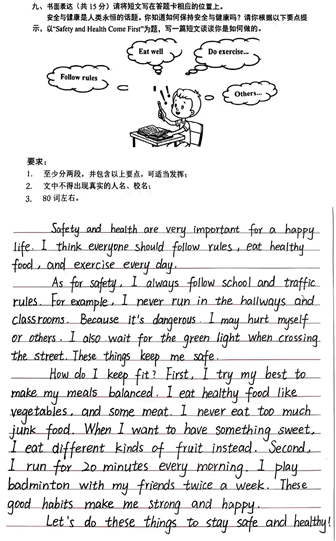 九、书面表达（共 15 分）请将短文写在答题卡相应的位置上。
安全与健康是人类永恒的话题。你知道如何保持安全与健康吗？请你根据以下要点提
示，以“Safety and Health Come First”为题，写一篇短文谈谈你是如何做的。
Eat well
Do exercise...
Follow rules
Others...
要求：
1. 至少分两段，并包含以上要点，可适当发挥；
2. 文中不得出现真实的人名、校名；
3. 80 词左右。
Safety and health are very important for a happy
life. I think everyone should follow rules, eat healthy
food, and exercise every day.
As for safety, I always follow school and traffic
rules. For example, I never run in the hallways and
classrooms. Because it's dangerous. I may hurt myself
or others. I also wait for the green light when crossing
the street. These things keep me safe.
How do I keep fit? First, I try my best to
make my meals balanced. I eat healthy food like
vegetables, and some meat. I never eat too much
junk food. When I want to have something sweet,
I eat different kinds of fruit instead. Second,
I run for 20 minutes every morning. I play
badminton with my friends twice a week. These
good habits make me strong and happy.
Let's do these things to stay safe and healthy!